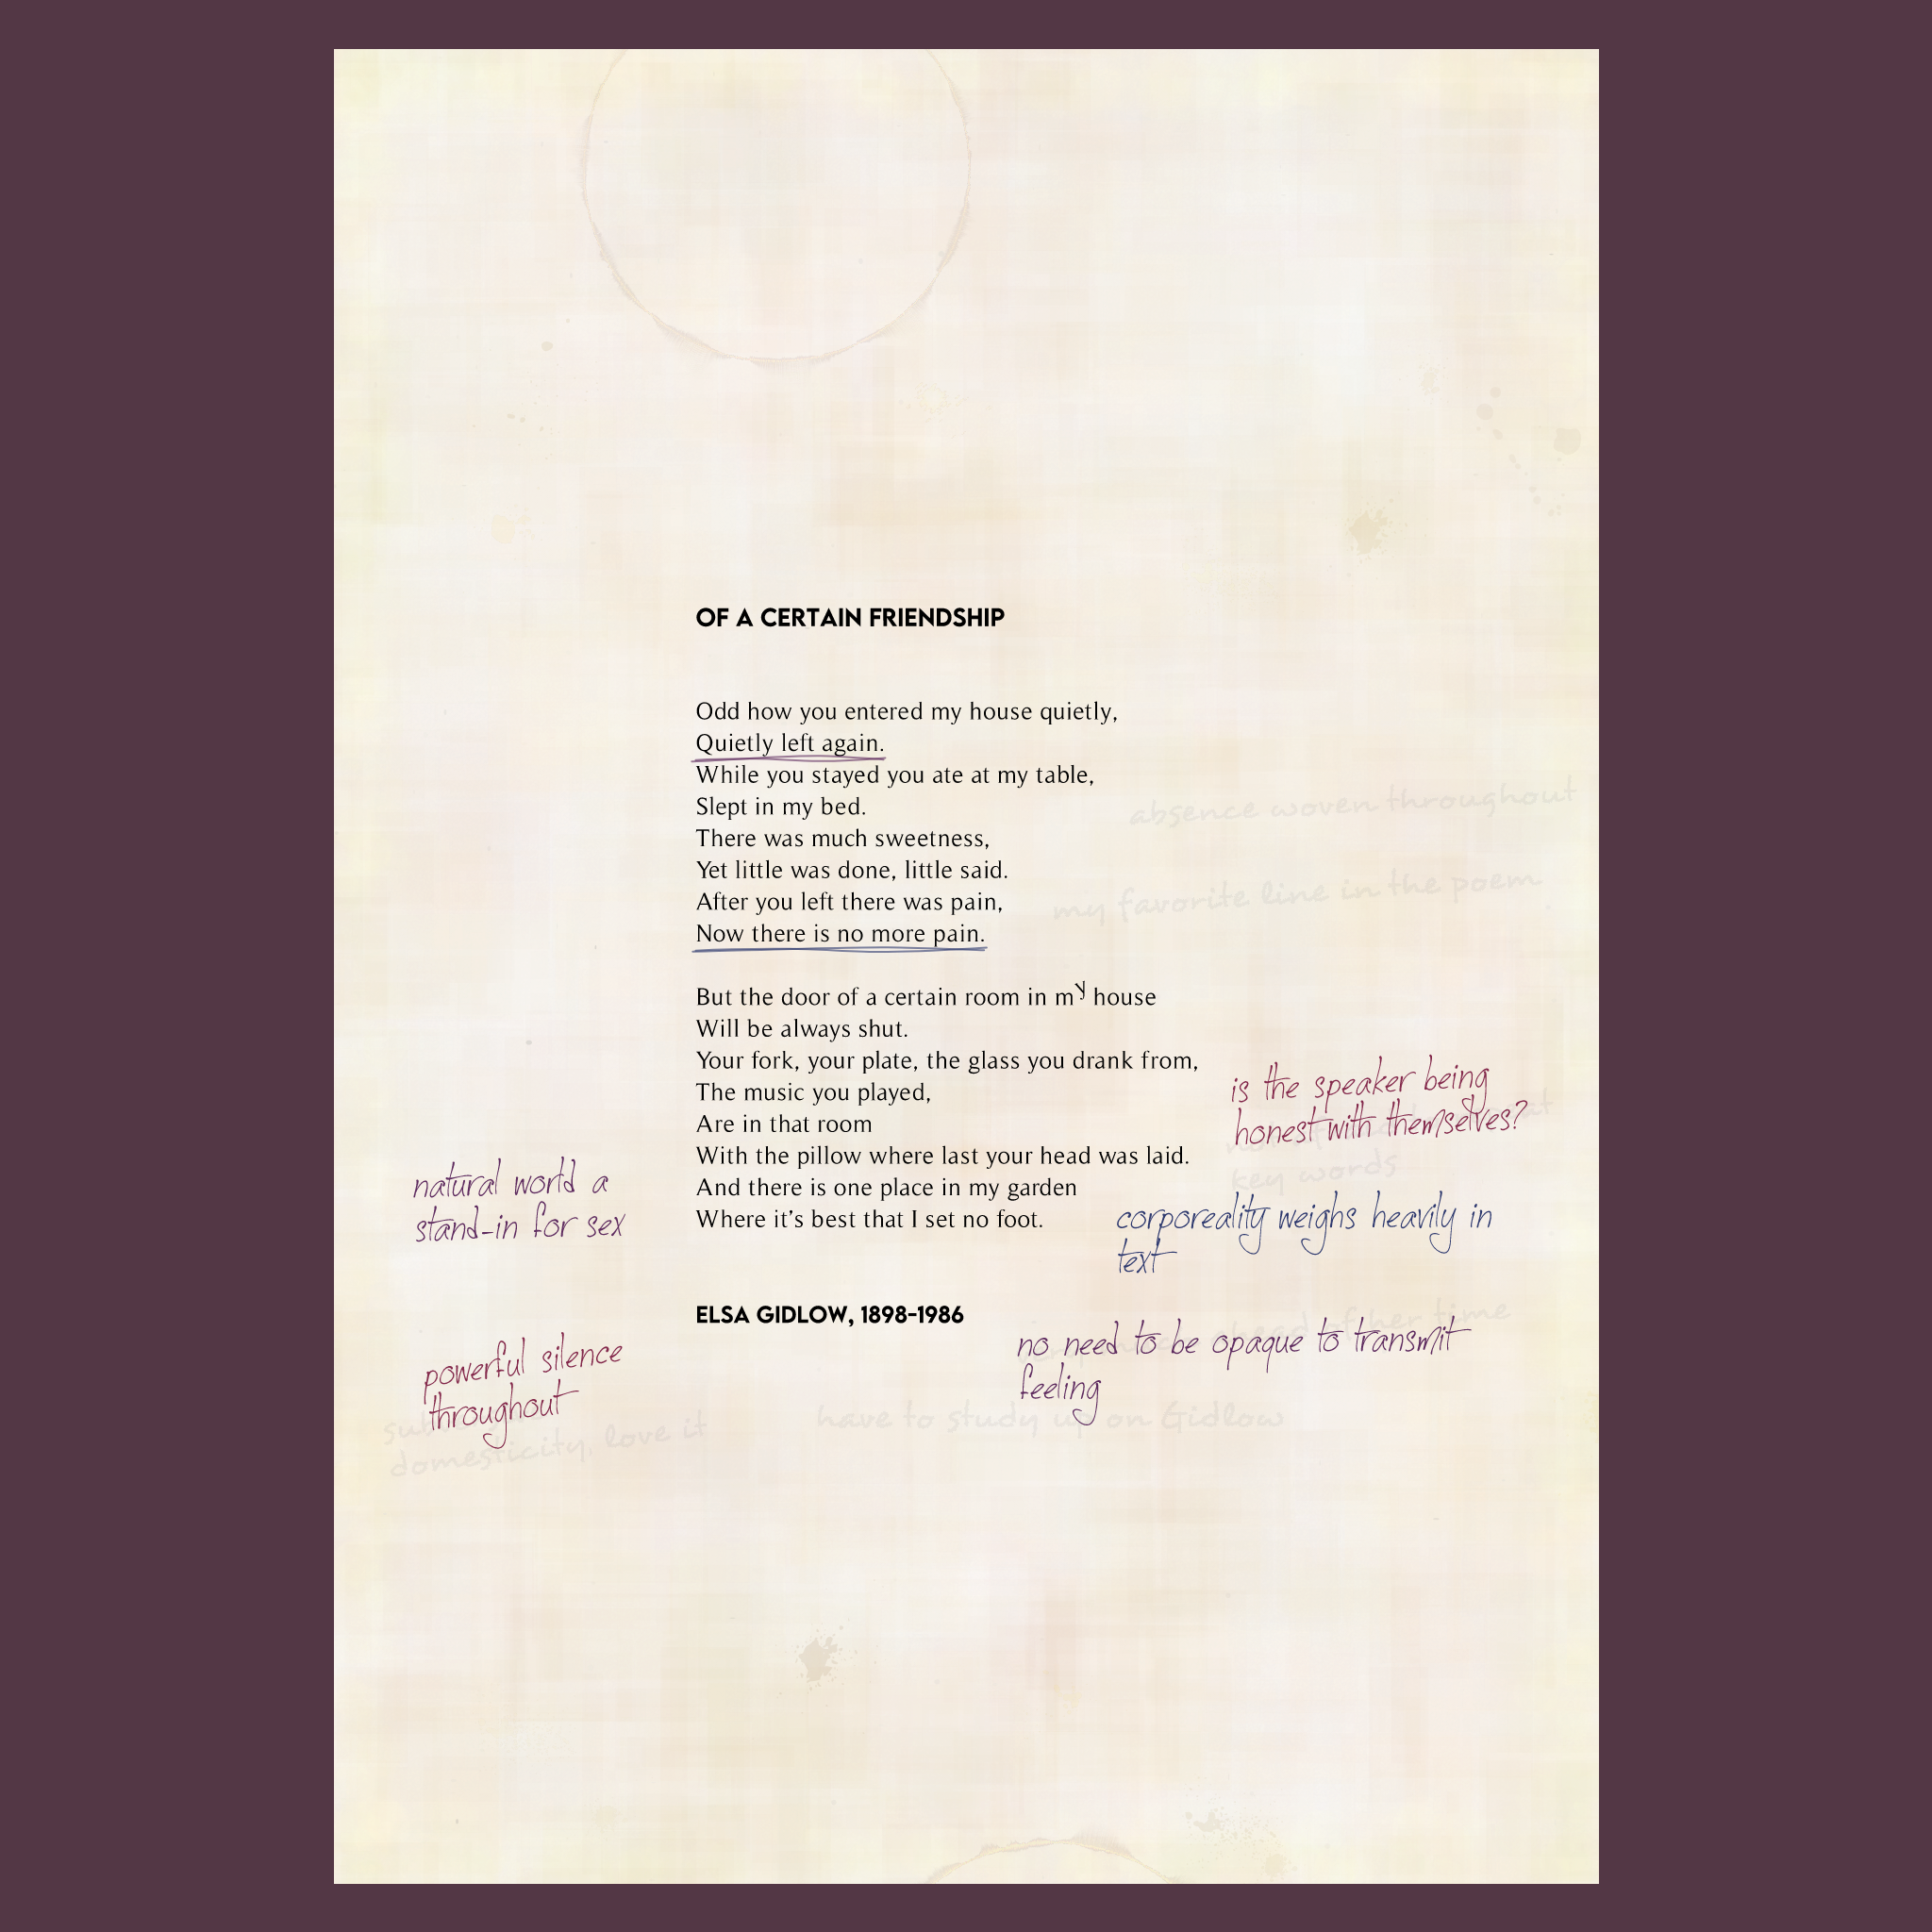 OF A CERTAIN FRIENDSHIP
Odd how you entered my house quietly,
Quietly left again.
While you stayed you ate at my table,
Slept in my bed.
There was much sweetness,
Yet little was done, little said.
After you left there was pain,
Now there is no more pain.
But the door of a certain room in my house
Will be always shut.
Your fork, your plate, the glass you drank from,
The music you played,
Are in that room
With the pillow where last your head was laid.
And there is one place in my garden
Where it's best that I set no foot.
ELSA GIDLOW, 1898-1986
absence woven throughout
my favorite line in the poem
is the speaker being
honest with themselves?
key words
corporeality weighs heavily in
text
natural world a
stand-in for sex
powerful silence
throughout
domesticity, love it
no need to be opaque to transmit
feeling
ahead of her time
have to study up on Gidlow